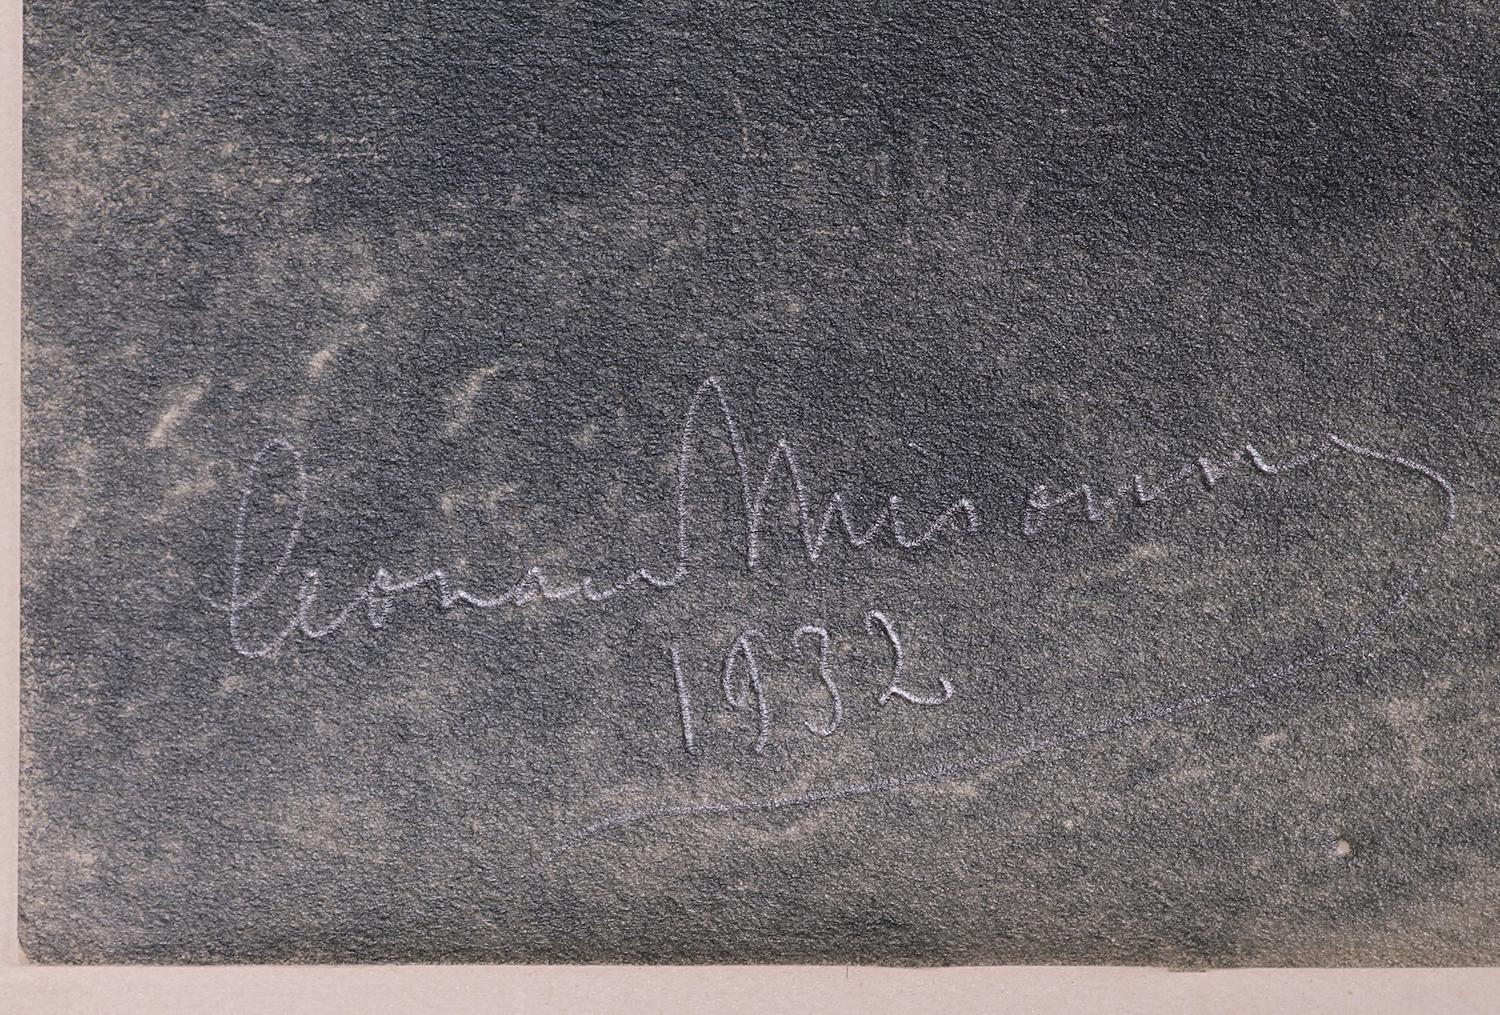 Leonard Misonne
1932